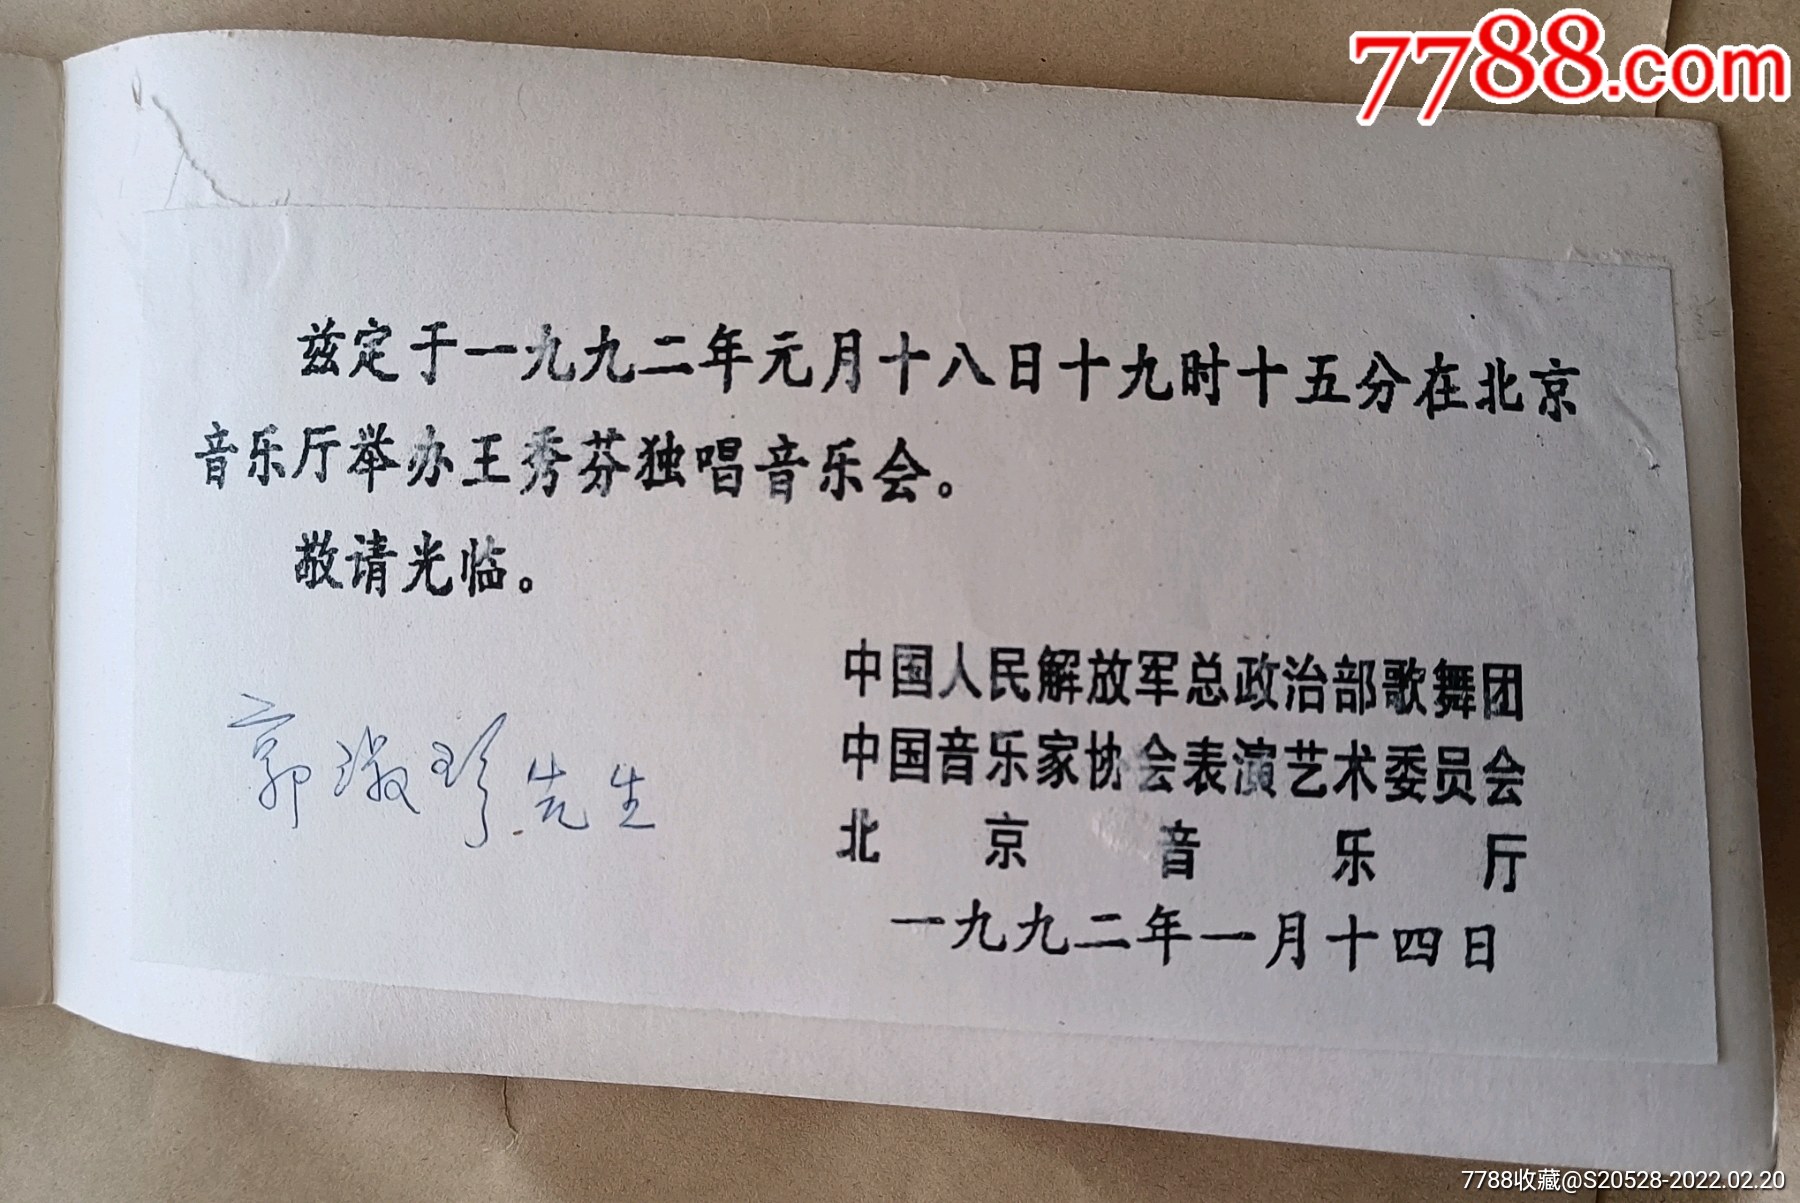 7788.com
兹定于一九九二年元月十八日十九时十五分在北京
音乐厅举办王秀芬独唱音乐会。
敬请光临。
郭淑珍先生
中国人民解放军总政治部歌舞团
中国音乐家协会表演艺术委员会
北京音乐厅
一九九二年一月十四日
7788收藏@S20528-2022.02.20